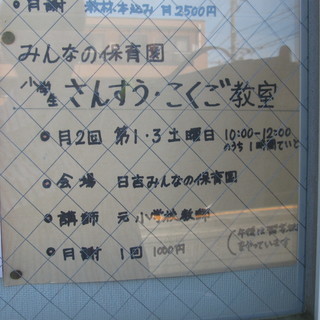 月謝 教材本込み 月2500円
みんなの保育園
小学生 さんすう・こくご教室
月2回 第1・3土曜日 10:00-12:00
のうち1時間ていど
会場 日吉みんなの保育園
講師 元小学校教師
月謝 1回 1000円